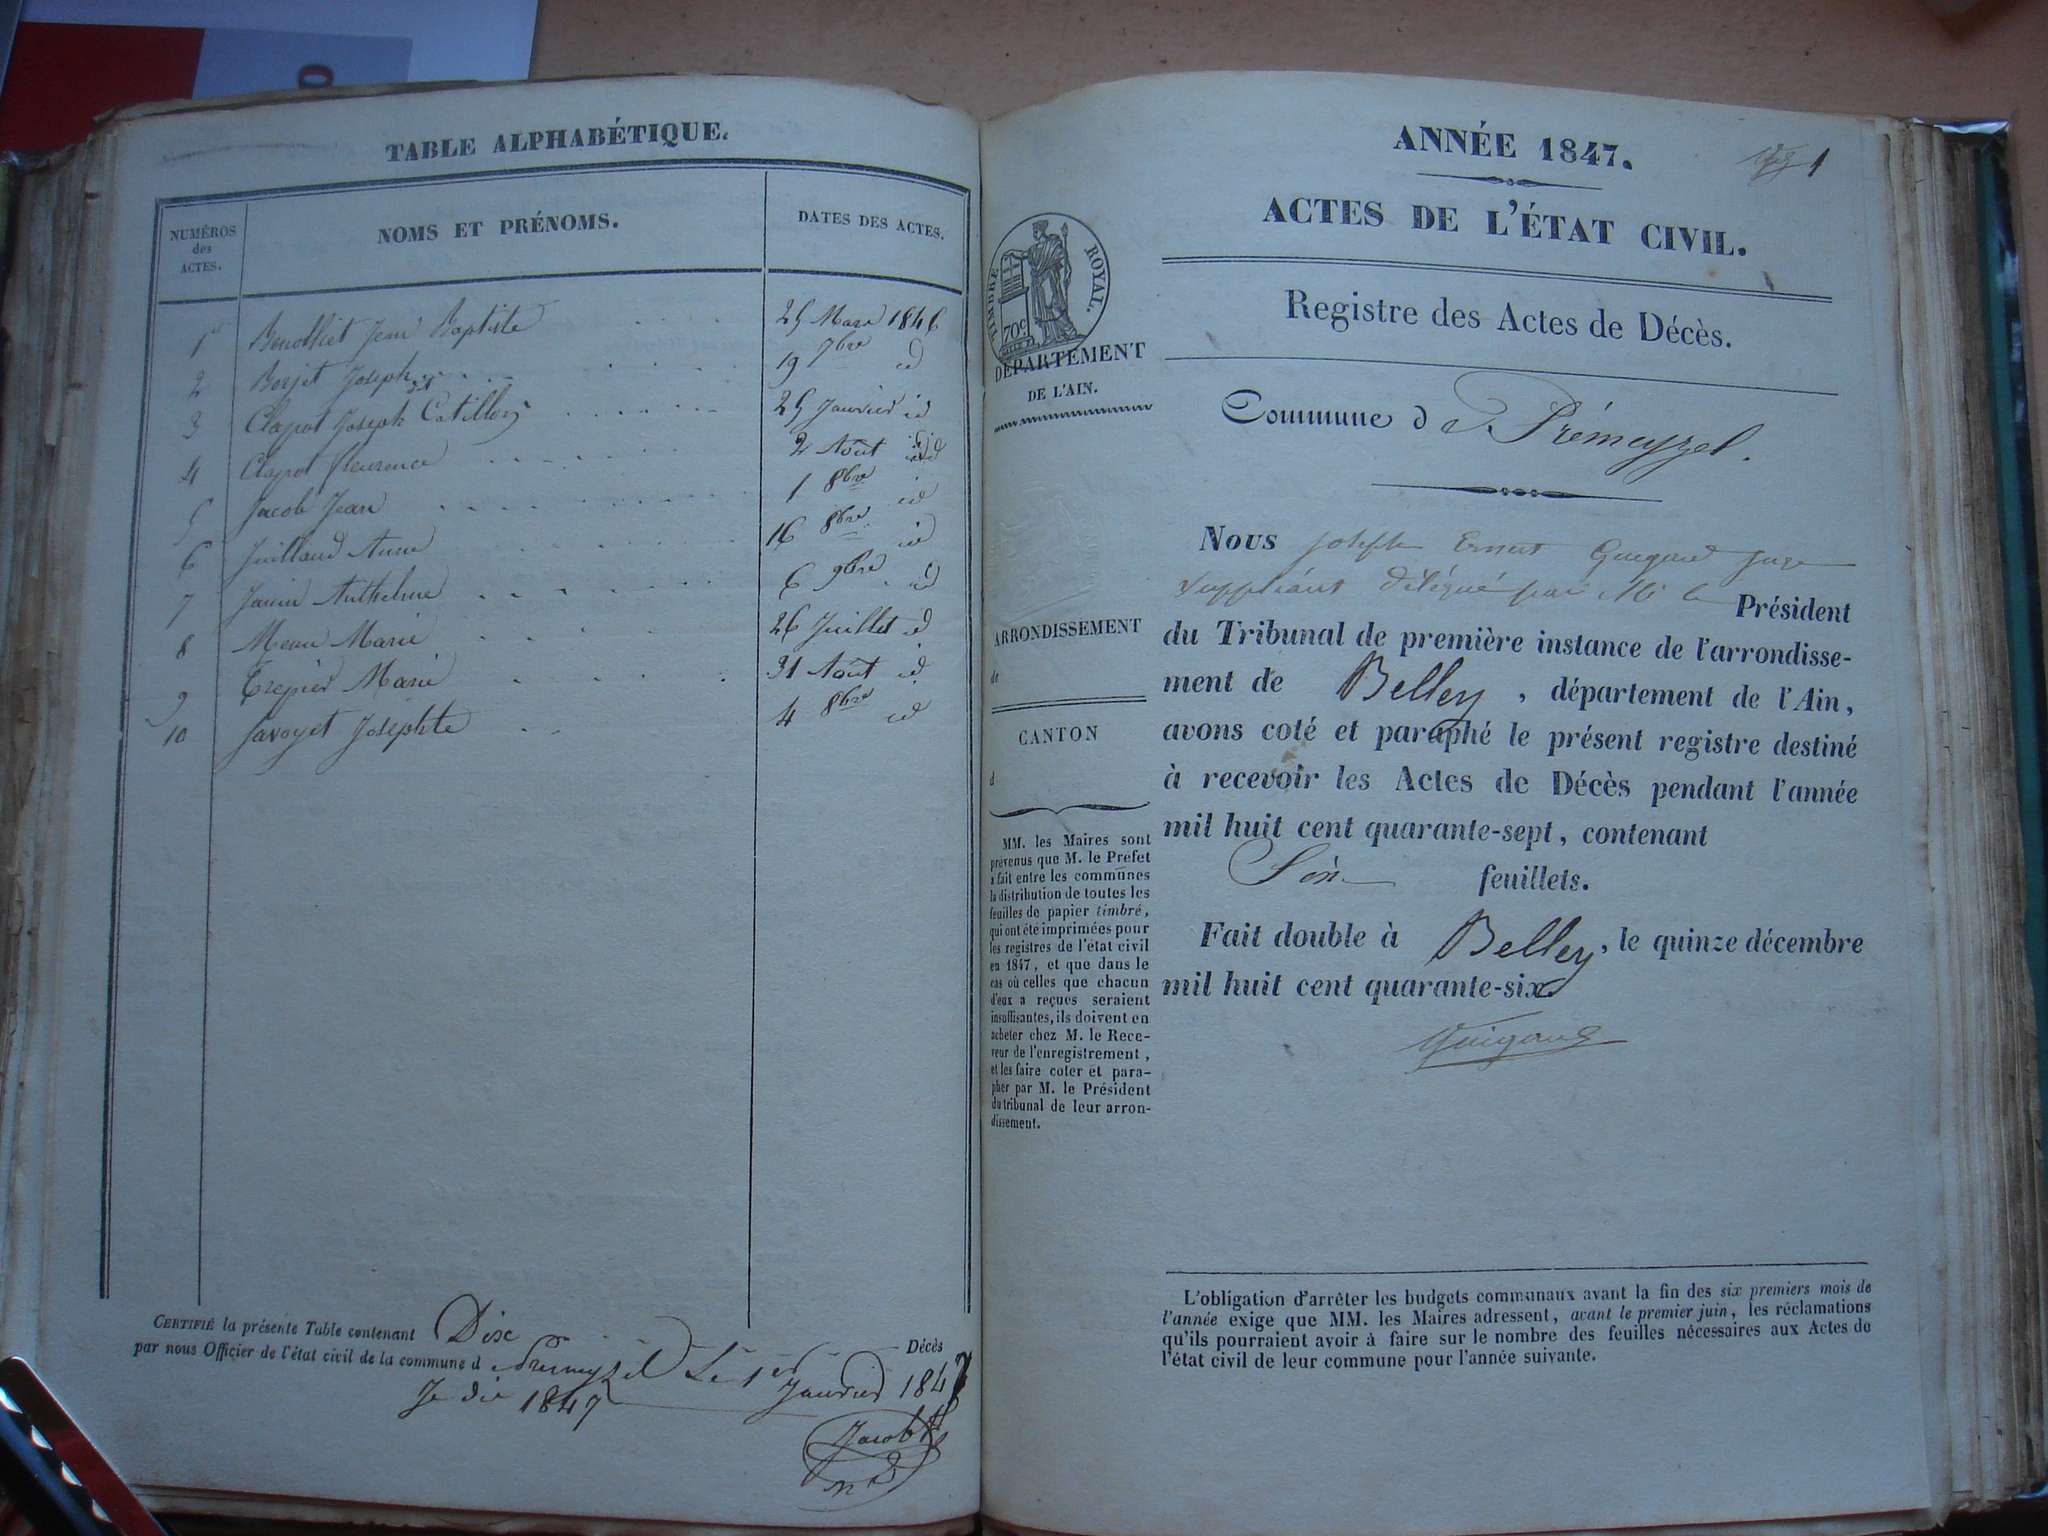 TABLE ALPHABÉTIQUE.
NUMÉROS des ACTES.
NOMS ET PRÉNOMS.
DATES DES ACTES.
1er Benothiet Jean Baptiste 25 Mars 1846
2 Borjet Joseph 19 7bre id
3 Clapot Joseph dit Catillon 25 Janvier id
4 Clapot fleurence 2 Août id
5 Jacob Jean 1 8bre id
6 Juilland Anne 16 8bre id
7 Janin Anthelme 6 9bre id
8 Meau Marie 26 Juillet id
9 Trepier Marie 31 Août id
10 Savoyet Josephte 4 8bre id
CERTIFIÉ la présente Table contenant Dix Décès
par nous Officier de l'état civil de la commune d Premeyzel Le 1er
Janvier 1847
Je dis 1847
Jacob
ANNÉE 1847.
1
ACTES DE L'ÉTAT CIVIL.
TIMBRE ROYAL.
70c
DÉPARTEMENT
DE L'AIN.
Registre des Actes de Décès.
Commune de Prémeyzel.
ARRONDISSEMENT
de
CANTON
d
MM. les Maires sont
prévenus que M. le Préfet
a fait entre les communes
la distribution de toutes les
feuilles de papier timbré,
qui ont été imprimées pour
les registres de l'état civil
en 1847, et que dans le
cas où celles que chacun
d'eux a reçues seraient
insuffisantes, ils doivent en
acheter chez M. le Rece-
veur de l'enregistrement,
et les faire coter et para-
pher par M. le Président
du tribunal de leur arron-
dissement.
Nous Joseph Ernest Guigard juge
suppléant délégué par Mr le Président
du Tribunal de première instance de l'arrondisse-
ment de Belley, département de l'Ain,
avons coté et paraphé le présent registre destiné
à recevoir les Actes de Décès pendant l'année
mil huit cent quarante-sept, contenant
Six feuillets.
Fait double à Belley, le quinze décembre
mil huit cent quarante-six
Guigard
L'obligation d'arrêter les budgets communaux avant la fin des six premiers mois de
l'année exige que MM. les Maires adressent, avant le premier juin, les réclamations
qu'ils pourraient avoir à faire sur le nombre des feuilles nécessaires aux Actes de
l'état civil de leur commune pour l'année suivante.